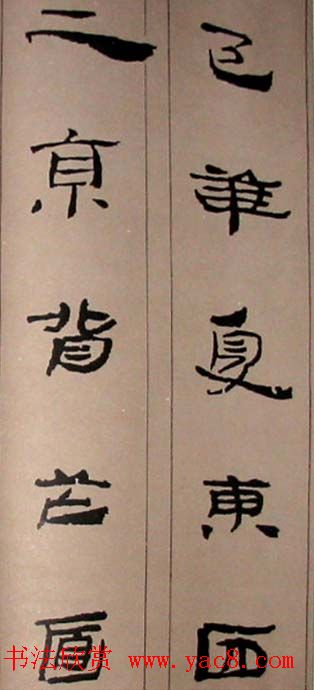 邑華夏東西
二京背芒面
书法欣赏 www.yac8.com